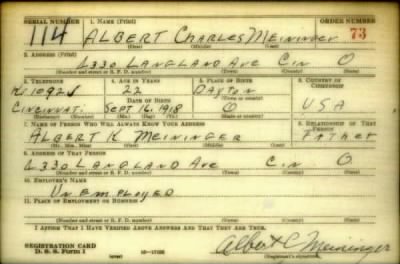 SERIAL NUMBER 1. NAME (Print) ORDER NUMBER
114 ALBERT CHARLES MEININGER 73
(First) (Middle) (Last)
2. ADDRESS (Print)
6330 LANGLAND AVE CIN O
(Number and street or R. F. D. number) (Town) (County) (State)
3. TELEPHONE 4. AGE IN YEARS 5. PLACE OF BIRTH 6. COUNTRY OF CITIZENSHIP
1092J 22 DAYTON
DATE OF BIRTH
CINCINNATI SEPT 16, 1918 O USA
(Exchange) (Number) (Mo.) (Day) (Yr.) (State or country)
7. NAME OF PERSON WHO WILL ALWAYS KNOW YOUR ADDRESS 8. RELATIONSHIP OF THAT PERSON
ALBERT K MEININGER FATHER
(Mr., Mrs., Miss) (First) (Middle) (Last)
9. ADDRESS OF THAT PERSON
6330 LANGLAND AVE CIN O
(Number and street or R. F. D. number) (Town) (County) (State)
10. EMPLOYER'S NAME
UNEMPLOYED
11. PLACE OF EMPLOYMENT OR BUSINESS
(Number and street or R. F. D. number) (Town) (County) (State)
I AFFIRM THAT I HAVE VERIFIED ABOVE ANSWERS AND THAT THEY ARE TRUE.
REGISTRATION CARD
D. S. S. Form 1 (over) Albert C Meininger
(Registrant's signature)